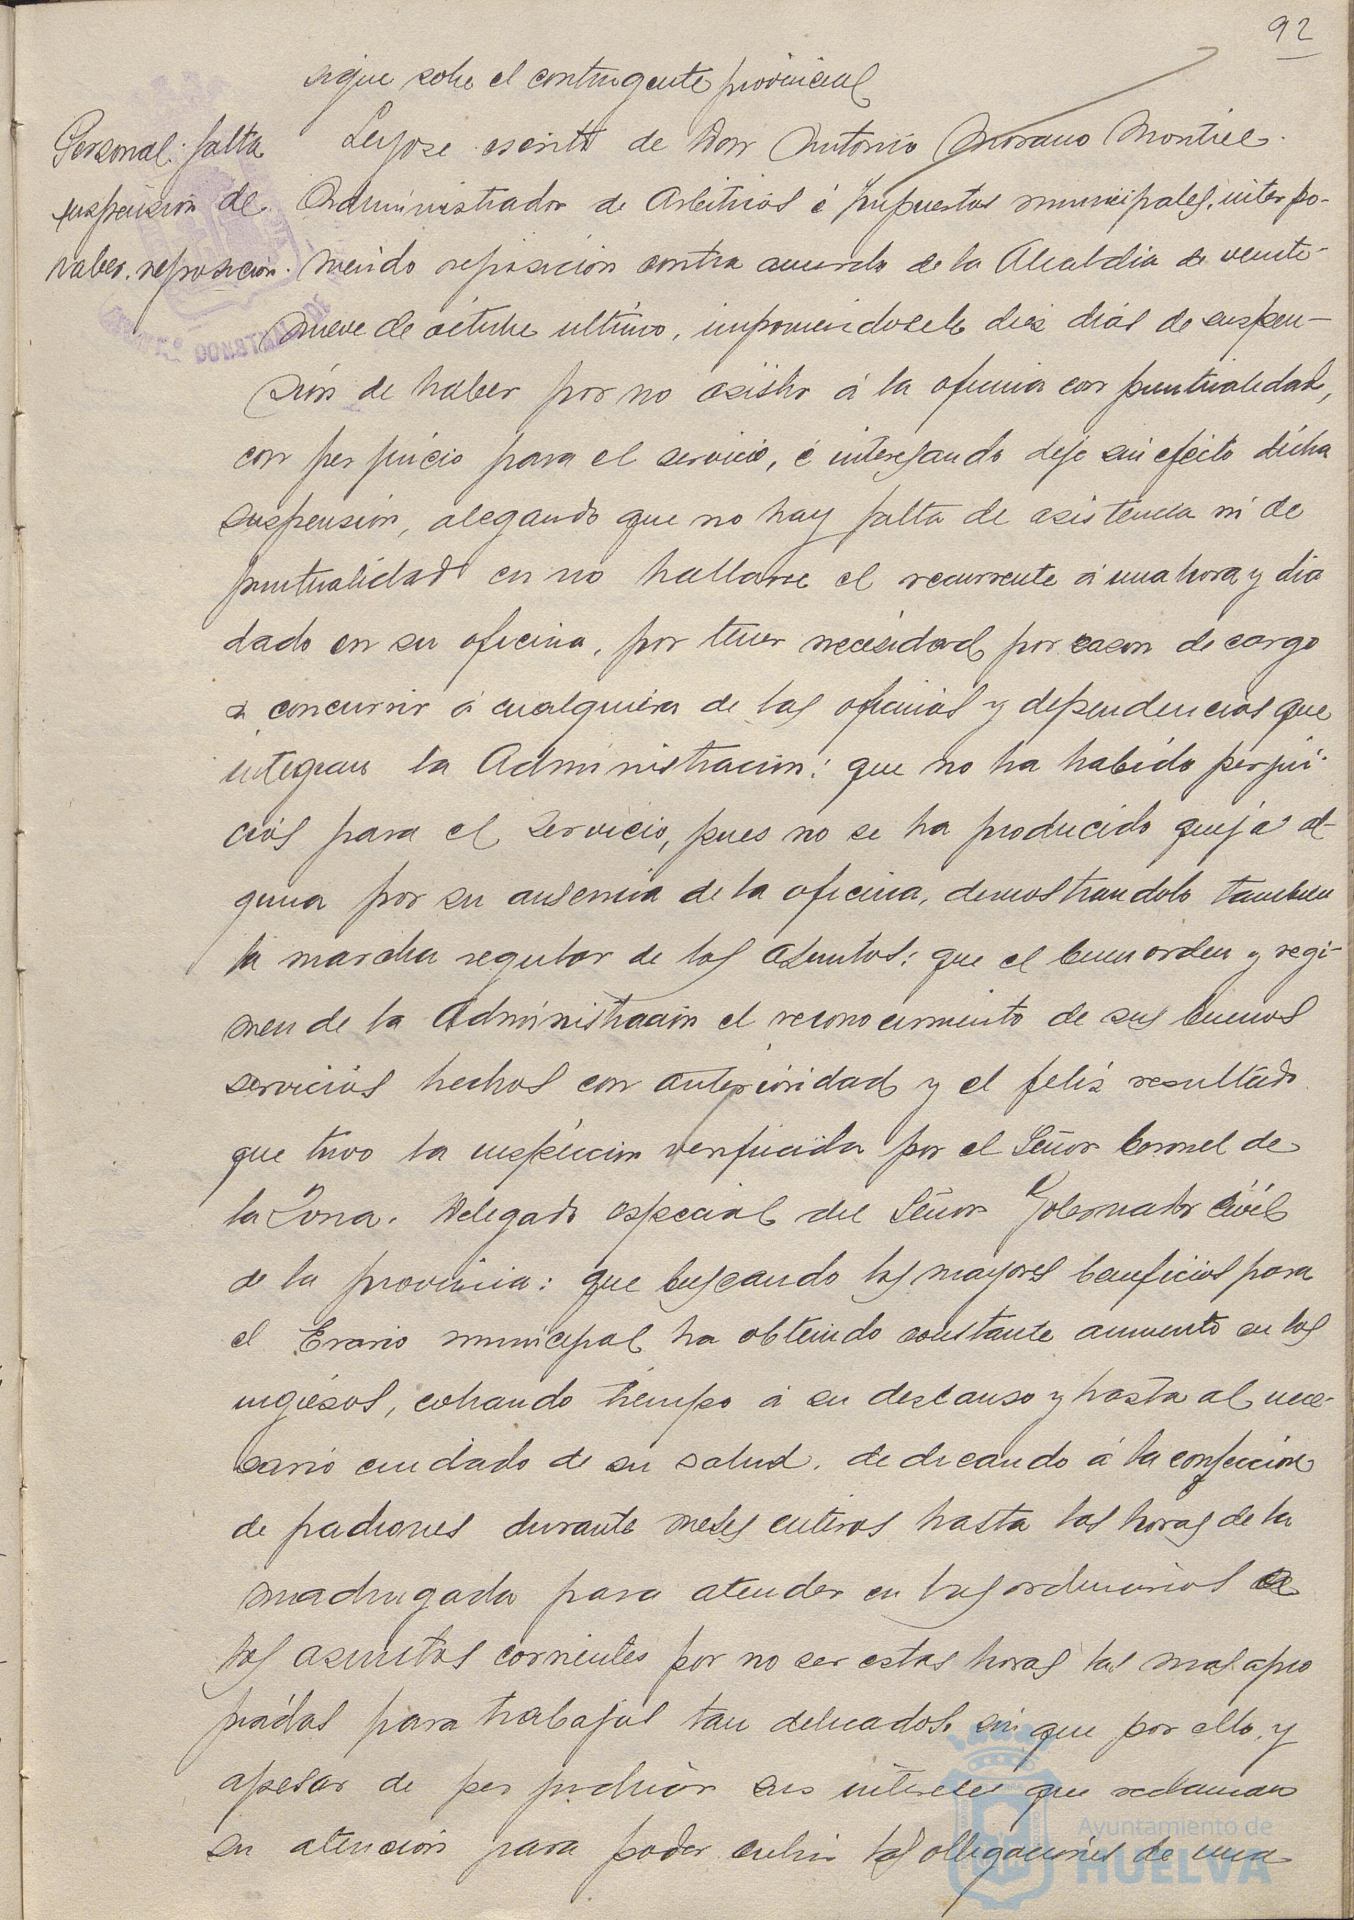 92
sigue sobre el contingente provincial
Personal: falta
suspension de
haber. reposicion.
Leyose escrito de Don Antonio Morano Montiel
Administrador de Arbitrios é Impuestos municipales, interpo-
niendo reposicion contra acuerdo de la Alcaldia de veinte-
nueve de octubre ultimo, imponiendosele diez dias de suspen-
sión de haber por no asistir á la oficina con puntualidad,
con perjuicio para el servicio, é interesando deje sin efecto dicha
suspensión, alegando que no hay falta de asistencia ni de
puntualidad en no hallarse el recurrente á una hora y dia
dado en su oficina, por tener necesidad por razon de cargo
a concurrir á cualquiera de las oficinas y dependencias que
integran la Administracion: que no ha habido perjui-
cios para el servicio, pues no se ha producido queja al-
guna por su ausencia de la oficina, demostrandolo tambien
la marcha regular de los asuntos: que el buen orden y regi-
men de la Administracion el reconocimiento de sus buenos
servicios hechos con anterioridad y el feliz resultado
que tuvo la inspeccion verificada por el Señor Coronel de
la Zona. Delegado especial del Señor Gobernador Civil
de la provincia: que buscando los mayores beneficios para
el Erario municipal ha obtenido constante aumento en los
ingresos, robando tiempo á su descanso y hasta al nece-
sario cuidado de su salud, dedicando á la confeccion
de padrones durante meses enteros hasta las horas de la
madrugada para atender en las ordinarias a
los asuntos corrientes por no ser estas horas las mas apro
piadas para trabajos tan delicados, sin que por ello, y
apesar de perjudicar sus intereses que reclaman
su atencion para poder cubrir las obligaciones de una
Ayuntamiento de
HUELVA